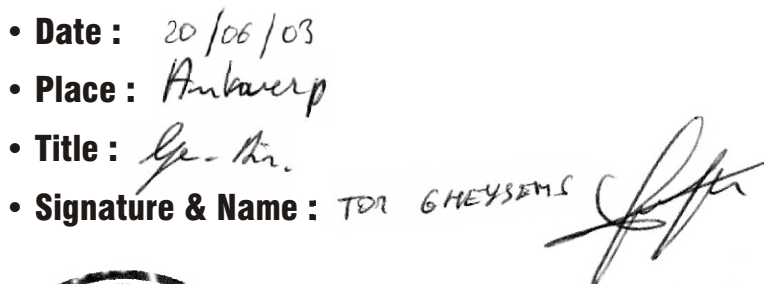 • Date : 20/06/03
• Place : Antwerp
• Title : Ge. Dir.
• Signature & Name : TOM GHEYSENS